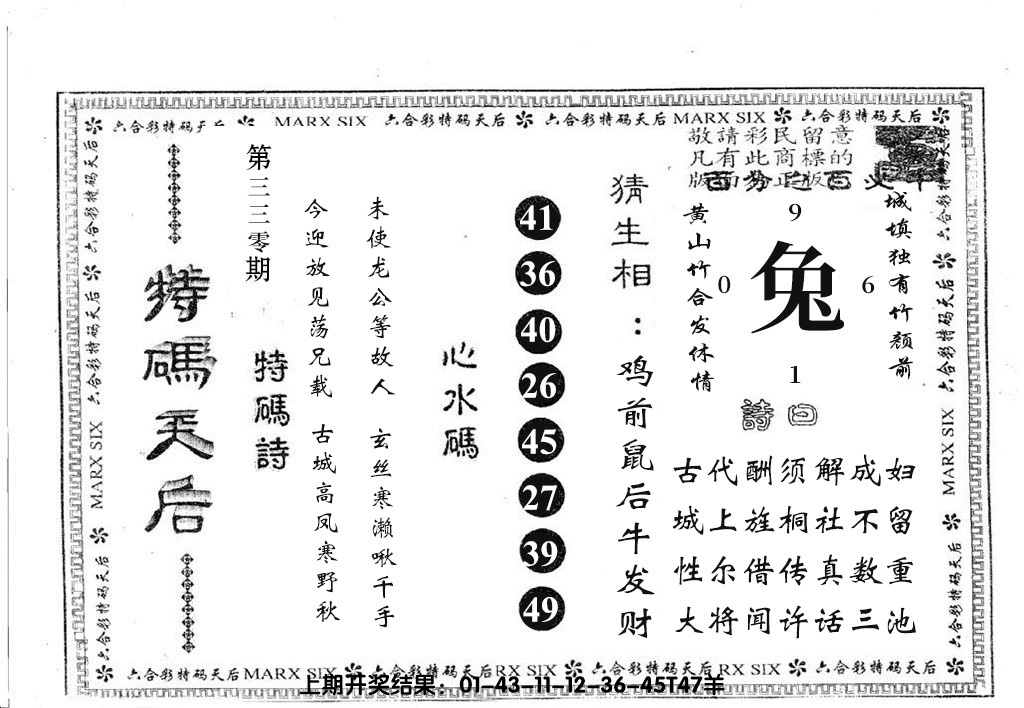 六合彩特码天后 MARX SIX 六合彩特码天后 六合彩特码天后 MARX SIX 六合彩特码天后
敬請彩民留意
凡有此商標的
版面為正版
城填独有竹颜前
黄山竹合发休情
9
0
兔
6
1
詩曰
妇留重池
成不数三
解社真话
须桐传许
酬旌借闻
代上尔将
古城性大
猜生相：鸡前鼠后牛发财
41
36
40
26
45
27
39
49
心水碼
未使龙公等故人 玄丝寒濑啾千手
今迎放见荡兄载 古城高凤寒野秋
特碼詩
第三三零期
特碼天后
六合彩特码天后 六合彩特码天后 MARX SIX 六合彩特码天后
六合彩特码天后 六合彩特码天后 MARX SIX 六合彩特码天后
六合彩特码天后 MARX SIX 六合彩特码天后 RX SIX 六合彩特码天后 RX SIX 六合彩特码天后
上期开奖结果：01-43-11-12-36-45T47羊